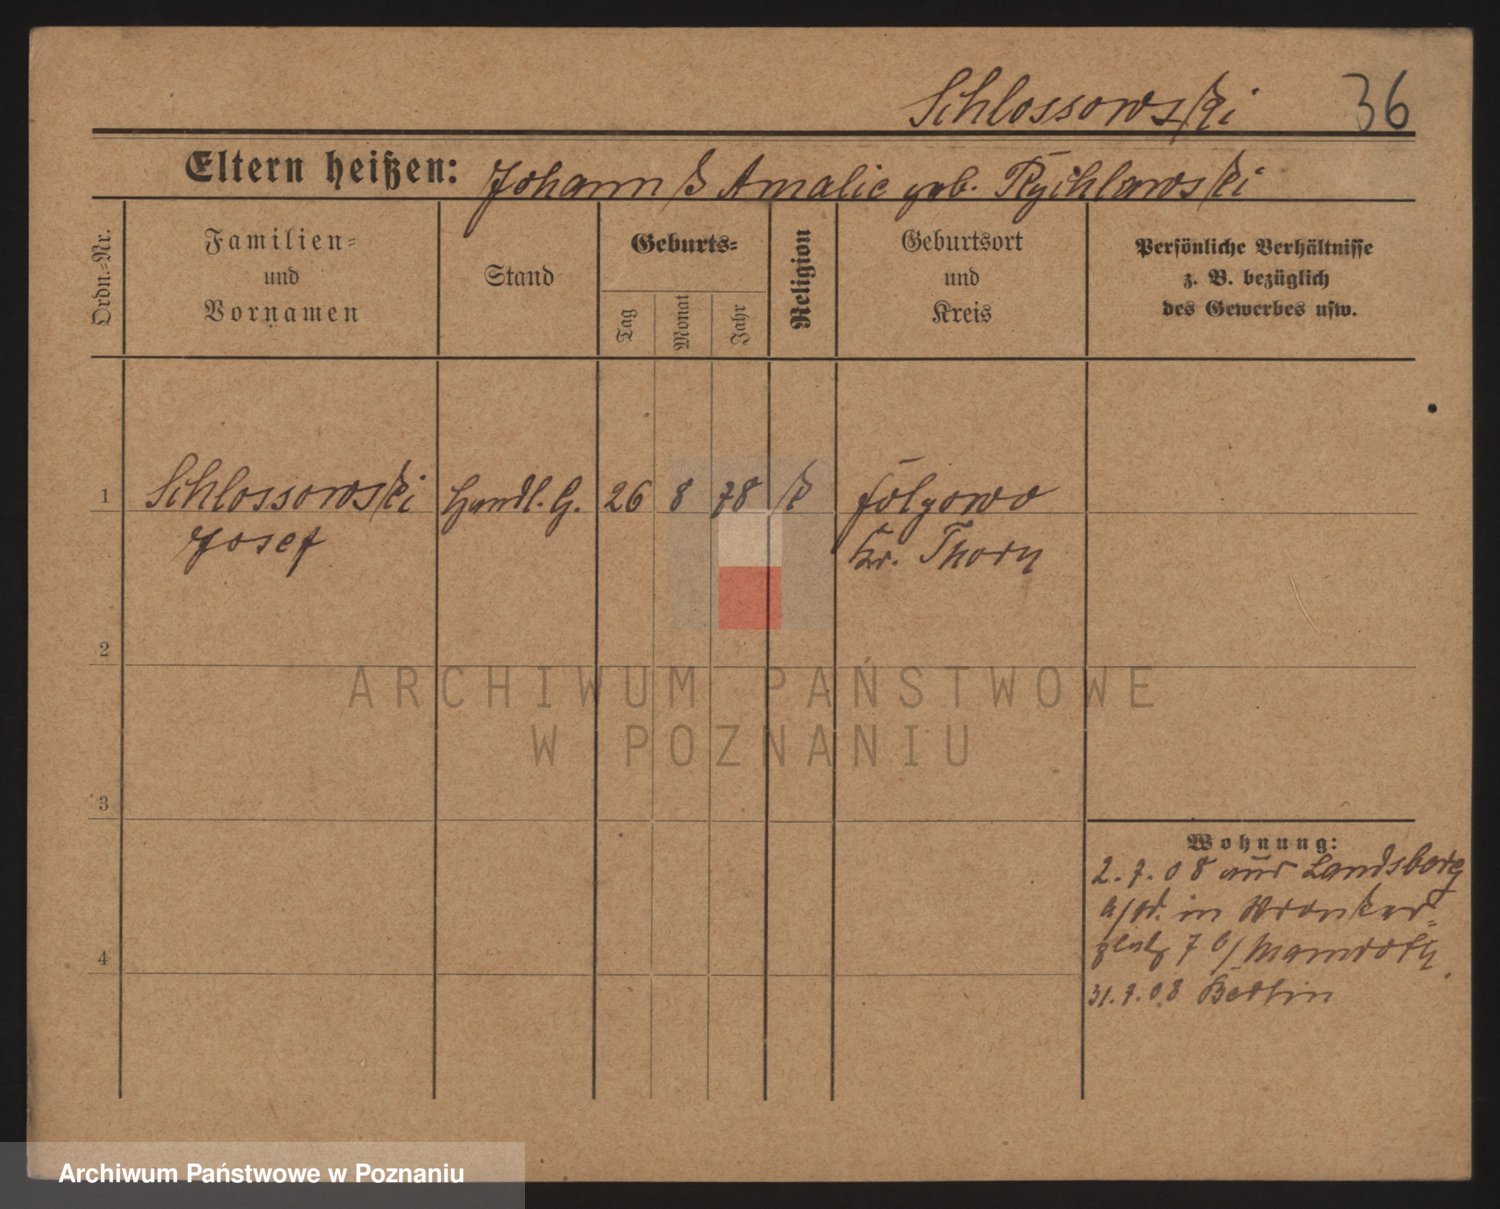 Schlossowski 36
Eltern heißen: Johann & Amalie geb. Rychlawski
Ordn.=Nr.
Familien=
und
Vornamen
Stand
Geburts=
Tag
Monat
Jahr
Religion
Geburtsort
und
Kreis
Persönliche Verhältnisse
z. B. bezüglich
des Gewerbes usw.
1 Schlossowski Handl. G. 26 8 78 k Folgowo
Josef Kr. Thorn
2
3
4
Wohnung:
2.7.08 aus Landsberg
a/W. in Wronker=
platz 7 b/ Mamroth
31.7.08 Berlin
ARCHIWUM PAŃSTWOWE
W POZNANIU
Archiwum Państwowe w Poznaniu